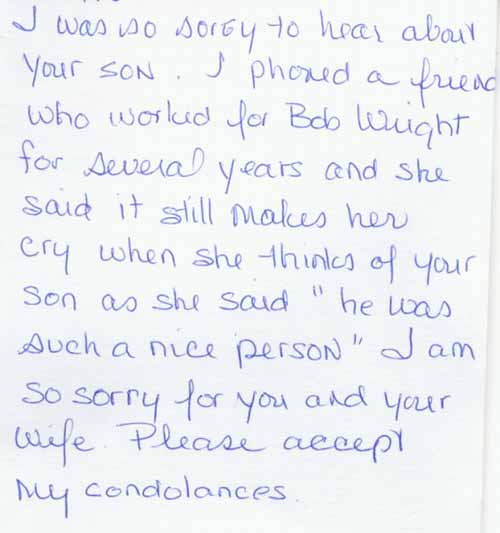 I was so sorry to hear about
your son. I phoned a friend
who worked for Bob Wright
for several years and she
said it still makes her
cry when she thinks of your
son as she said "he was
such a nice person" I am
so sorry for you and your
wife. Please accept
my condolances.